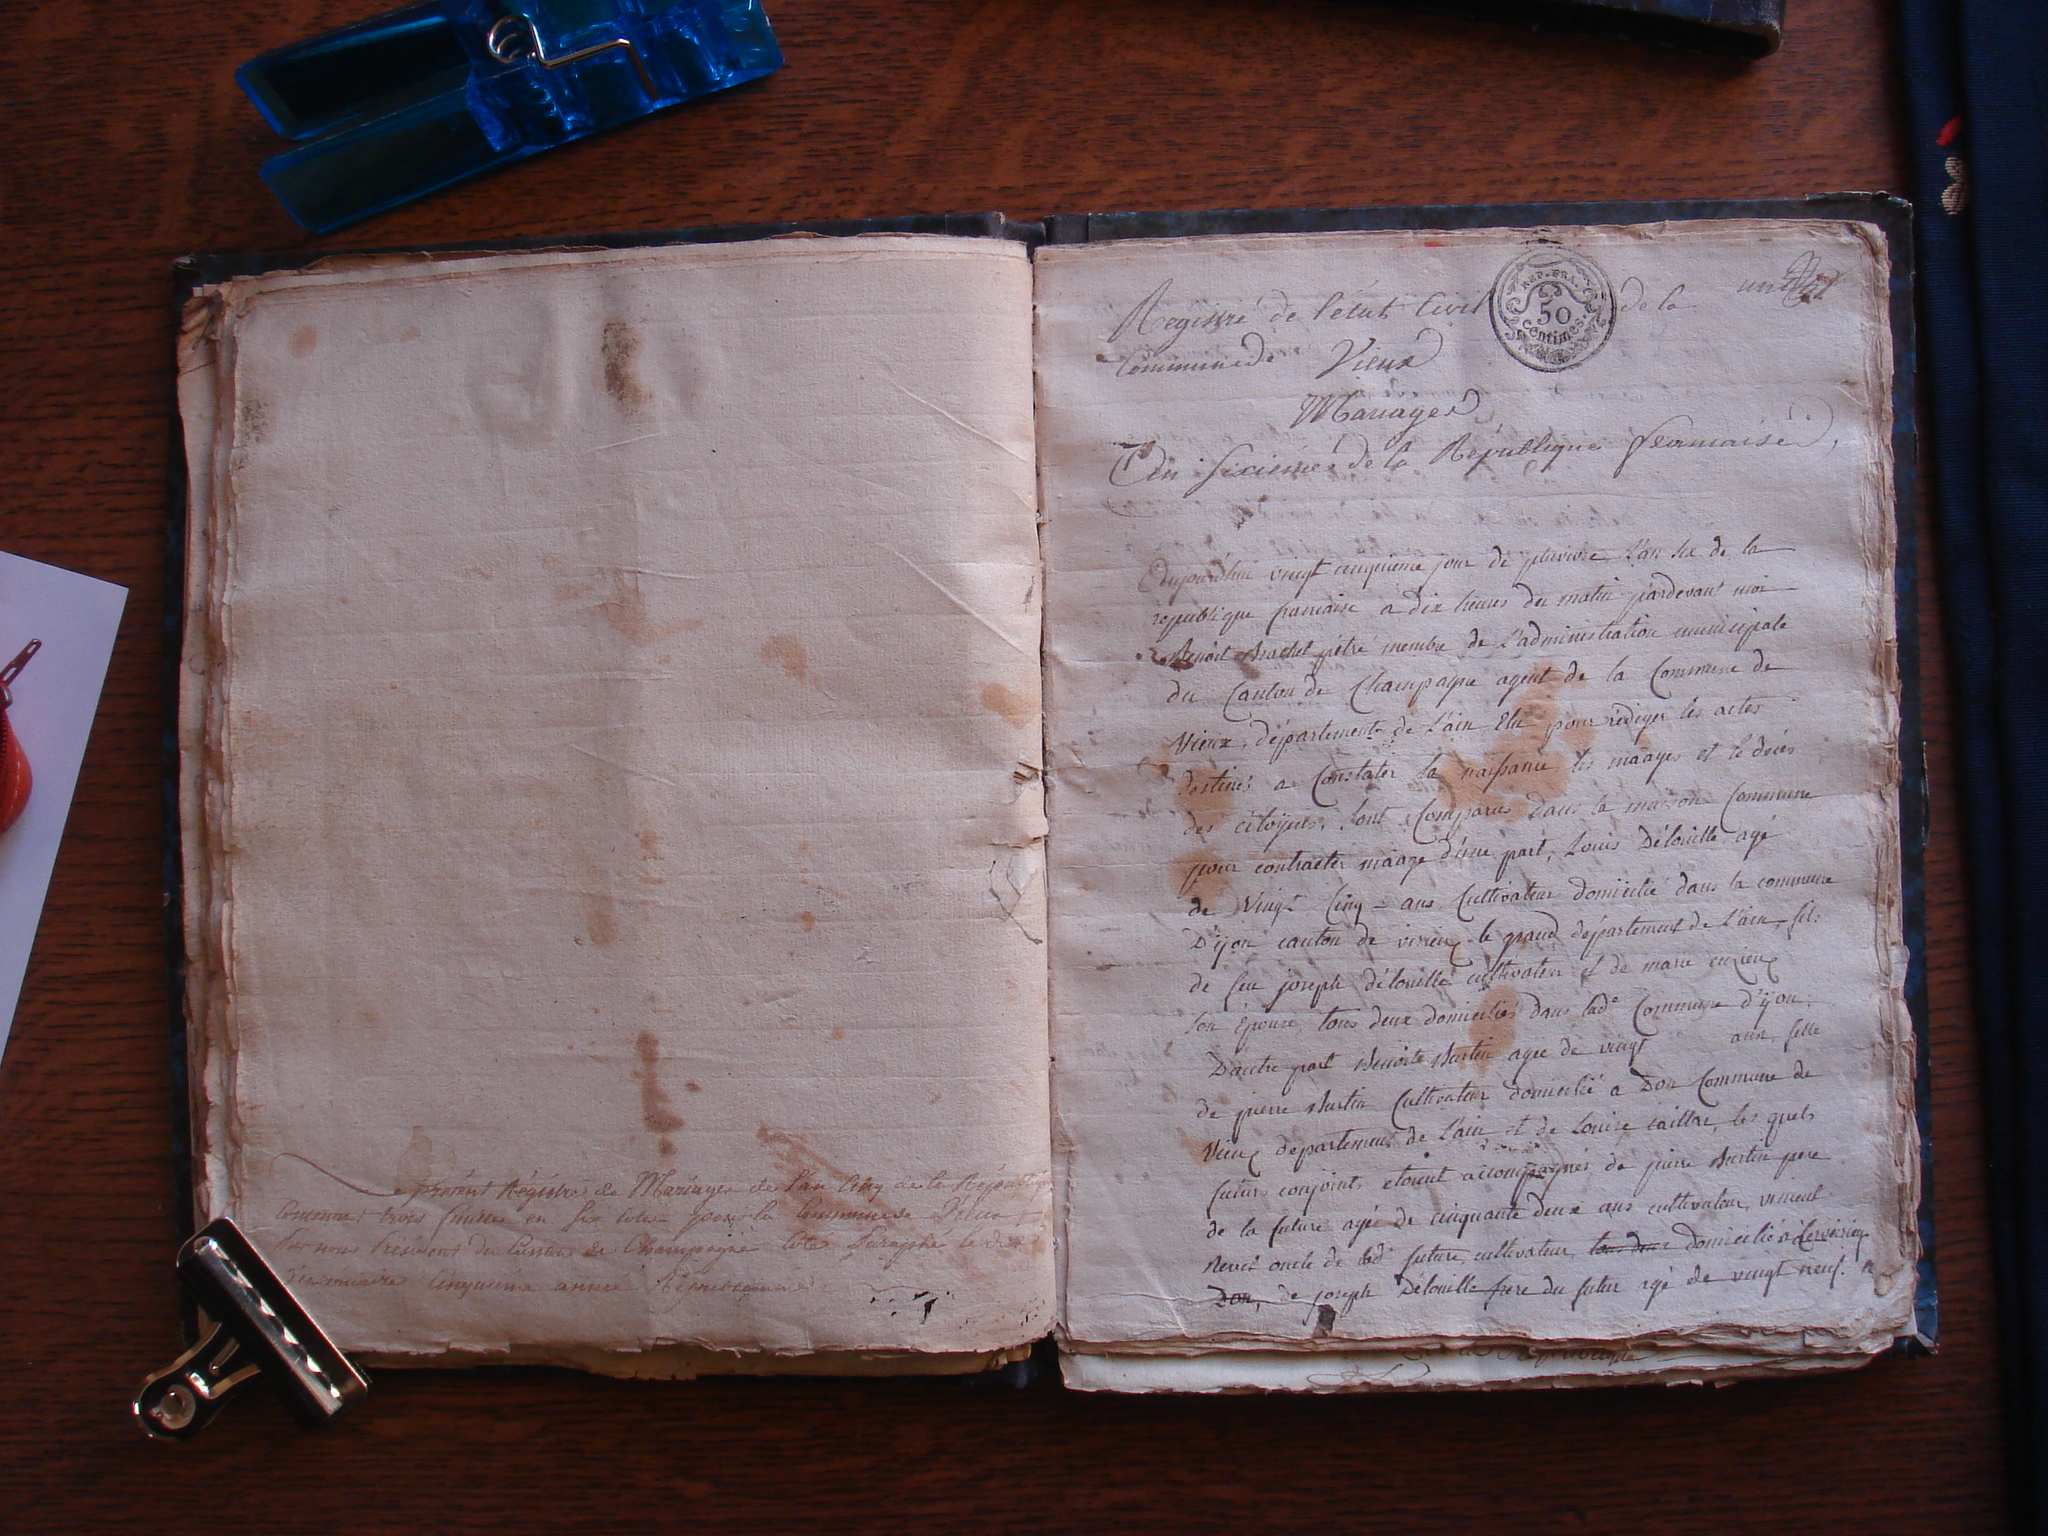 présent Régistre de Mariages de l'an Cinq de la République
Contenant trois feuilles en six cotes pour la Commune de Vieux
Par nous Président du Canton de Champagne Coté & Paraphé le dix
Cinquieme année Républicaine
Registre de l'état Civil de la
REP. FRA.
50
centimes.
Commune de Vieux
Mariages
an sixieme de la République francaise,
aujourdhui vingt cinquieme jour de pluviose l'an six de la
republique francaise a dix heures du matin pardevant moi
Benoit membre de L'administration municipale
du Canton de Champagne agent de la Commune de
Vieux, département de l'ain Elu pour rédiger les actes
destinés a Constater la naissance, les maages et le décès
des citoyens, sont Comparus dans la maison Commune
pour contracter maage d'une part, Louis Délouille agé
de Vingt Cinq - ans Cultivateur domicilié dans la commune
D'ijon canton de virieux le grand département de L'ain, fils
de feu joseph Délouille cultivateur et de marie
son Epouse, tous deux domiciliés dans lade Commune d'ijon;
D'autre part Benoite Burtin agée de vingt ans, fille
de pierre Burtin Cultivateur domicilié a Don Commune de
Vieux département de l'ain et de Louise les quels
futurs conjoints etoient accompagnés de pierre Burtin pere
de la future agé de cinquante deux ans cultivateur, vincent
oncle de lad future, cultivateur, tous deux domicilié a
Don, de joseph Délouille frere du futur agé de vingt neuf.